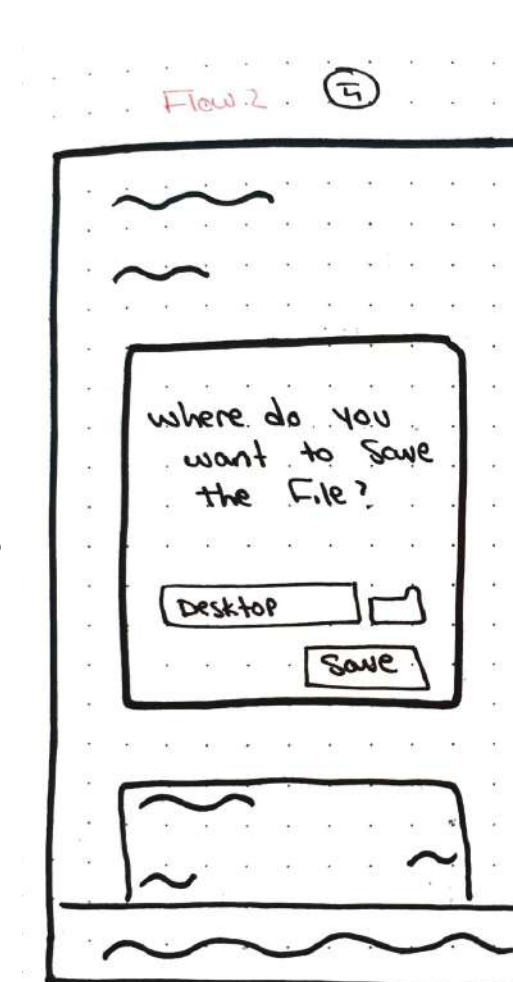 Flow 2
where do you
want to Save
the File?
Desktop
Save